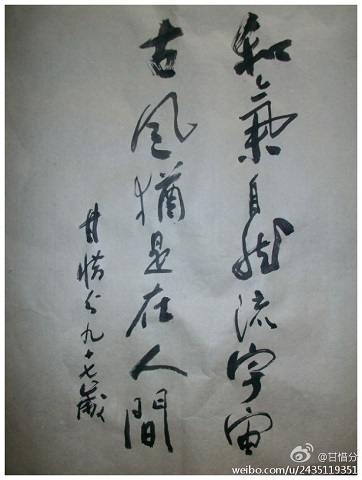 和氣自然流宇宙
古風猶是在人間
甘惜分九十七歲
@甘惜分
weibo.com/u/2435119351